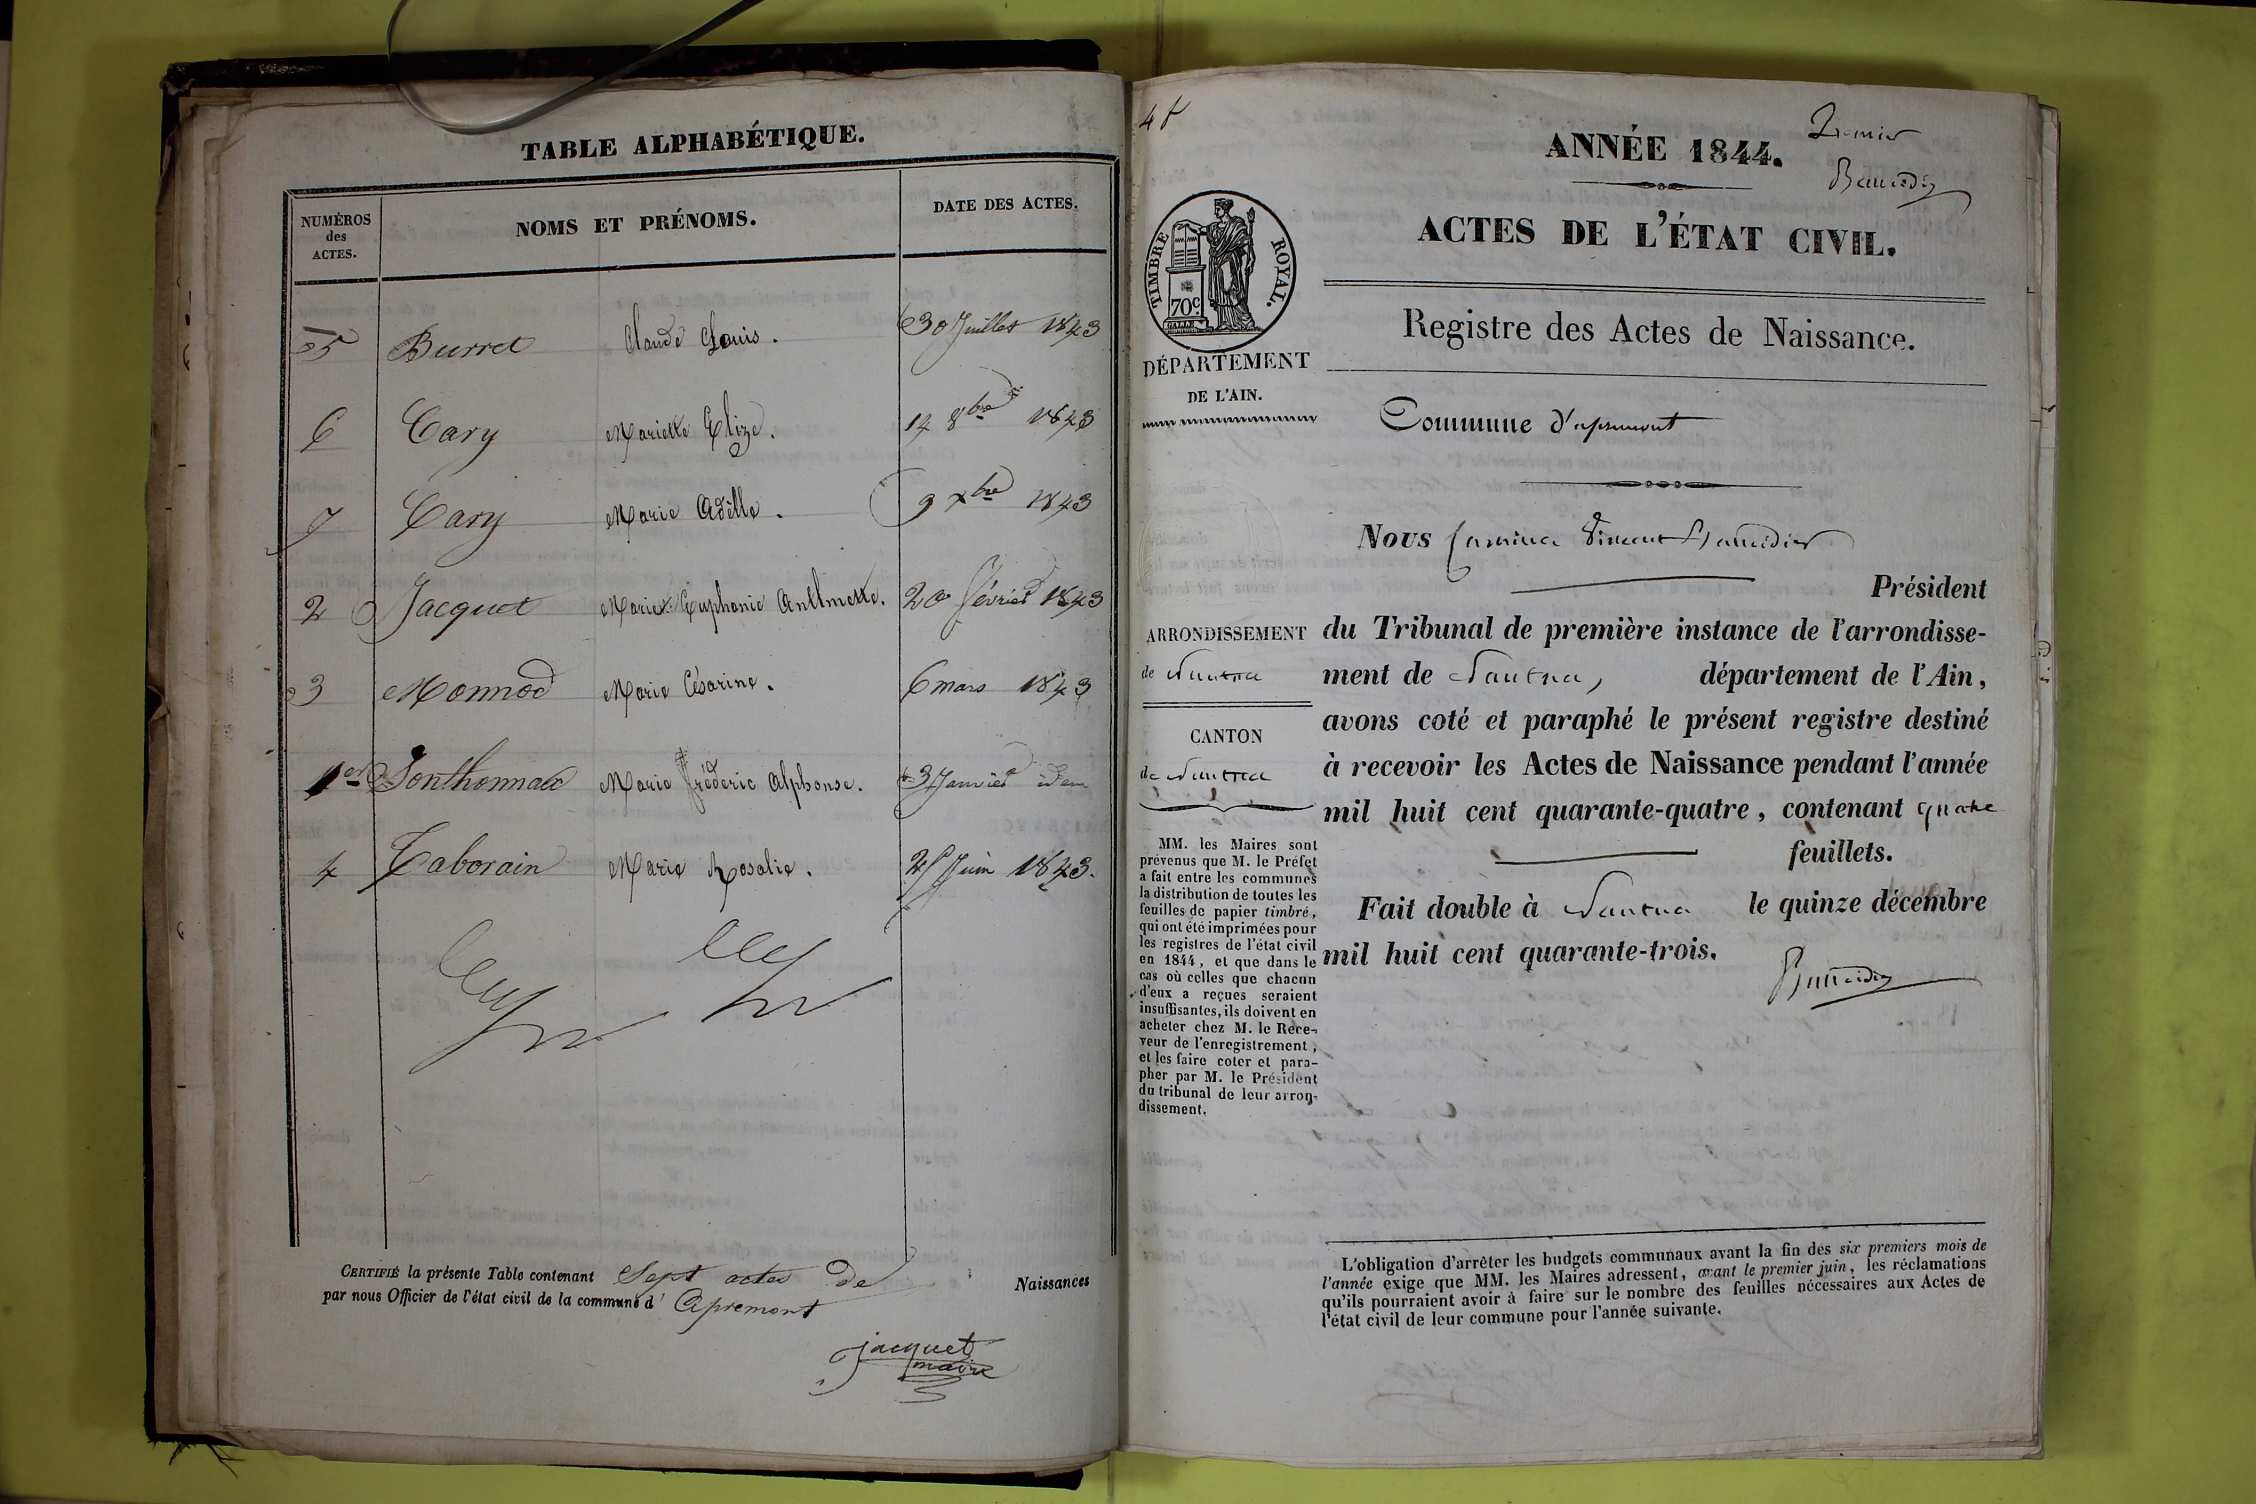 TABLE ALPHABÉTIQUE.
NUMÉROS des ACTES. NOMS ET PRÉNOMS. DATE DES ACTES.
5 Burret Claude Louis. 30 Juillet 1843
6 Cary Mariette Elize. 14 8bre 1843
7 Cary Marie Adèlle. 9 xbre 1843
2 Jacquet Marie Euphanie Anthmette. 20 Février 1843
3 Monnod Marie Césarine. 6 mars 1843
1er Sonthonnax Marie Fréderic Alphonse. 3 Janvier idem
4 Taborain Marie Rosalie. Juin 1843.
CERTIFIÉ la présente Table contenant Sept actes de Naissances
par nous Officier de l'état civil de la commune d' Apremont
jacquet
maire
ANNÉE 1844.
ACTES DE L'ÉTAT CIVIL.
TIMBRE ROYAL.
70c
Registre des Actes de Naissance.
DÉPARTEMENT
DE L'AIN.
Commune d'apremont
Nous
Président
ARRONDISSEMENT
de Nantua
CANTON
de Nantua
du Tribunal de première instance de l'arrondisse-
ment de Nantua, département de l'Ain,
avons coté et paraphé le présent registre destiné
à recevoir les Actes de Naissance pendant l'année
mil huit cent quarante-quatre, contenant quatre
feuillets.
Fait double à Nantua le quinze décembre
mil huit cent quarante-trois.
MM. les Maires sont
prévenus que M. le Préfet
a fait entre les communes
la distribution de toutes les
feuilles de papier timbré,
qui ont été imprimées pour
les registres de l'état civil
en 1844, et que dans le
cas où celles que chacun
d'eux a reçues seraient
insuffisantes, ils doivent en
acheter chez M. le Rece-
veur de l'enregistrement,
et les faire coter et para-
pher par M. le Président
du tribunal de leur arron-
dissement.
L'obligation d'arrêter les budgets communaux avant la fin des six premiers mois de
l'année exige que MM. les Maires adressent, avant le premier juin, les réclamations
qu'ils pourraient avoir à faire sur le nombre des feuilles nécessaires aux Actes de
l'état civil de leur commune pour l'année suivante.